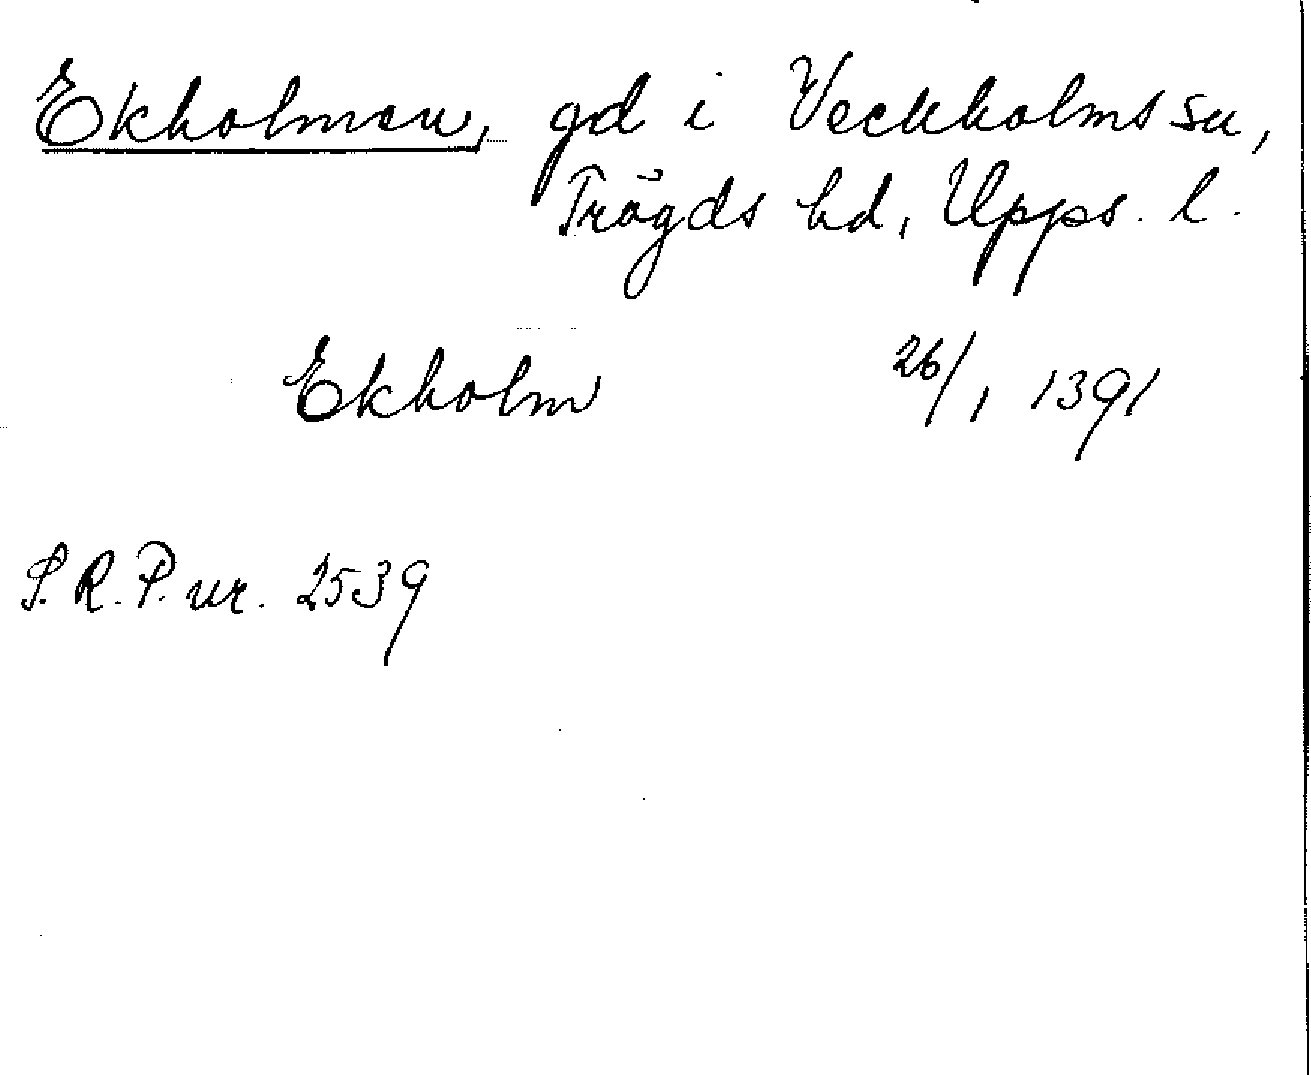 Ekholmen, gd i Veckholms sn,
Trögds hd, Upps. l.
Ekholm 26/1 1391
S.R.P. nr. 2539